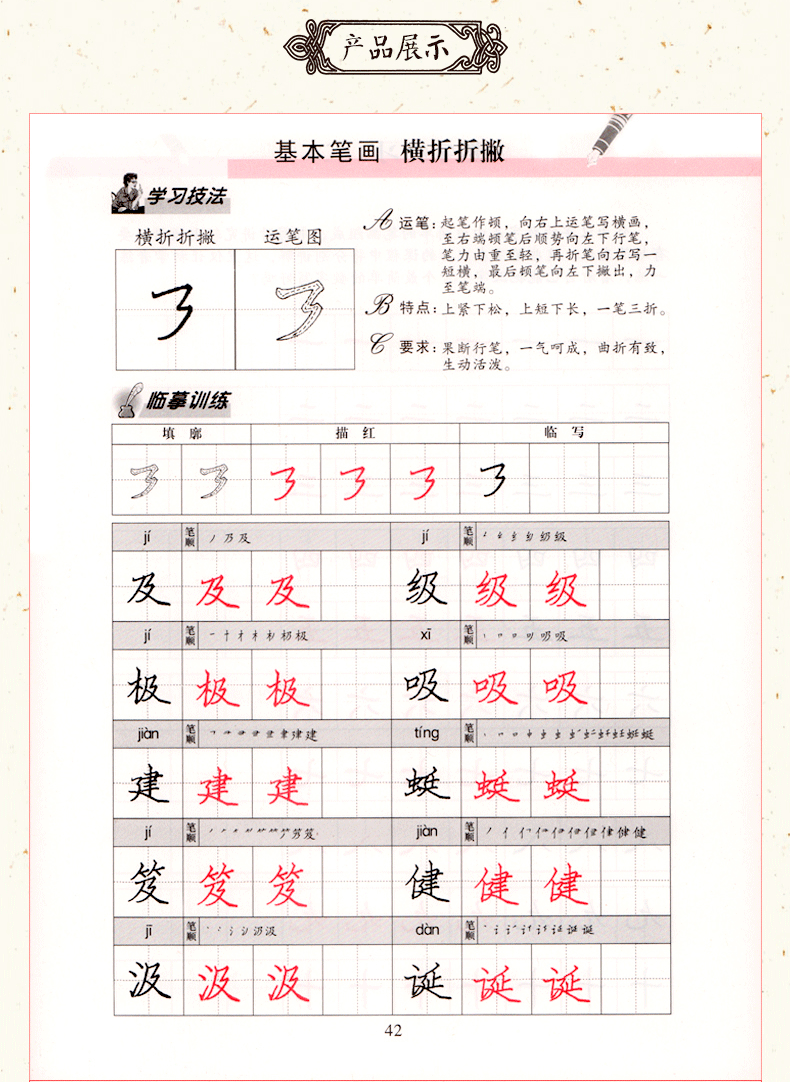 产品展示
基本笔画 横折折撇
学习技法
横折折撇 运笔图
A 运笔：起笔作顿，向右上运笔写横画，
至右端顿笔后顺势向左下行笔，
笔力由重至轻，再折笔向右写一
短横，最后顿笔向左下撇出，力
至笔端。
B 特点：上紧下松，上短下长，一笔三折。
C 要求：果断行笔，一气呵成，曲折有致，
生动活泼。
临摹训练
填廓 描红 临写
jí 笔顺 jí 笔顺
及 及 及 级 级 级
jí 笔顺 xī 笔顺
极 极 极 吸 吸 吸
jiàn 笔顺 tíng 笔顺
建 建 建 蜓 蜓 蜓
jí 笔顺 jiàn 笔顺
笈 笈 笈 健 健 健
jī 笔顺 dàn 笔顺
汲 汲 汲 诞 诞 诞
42